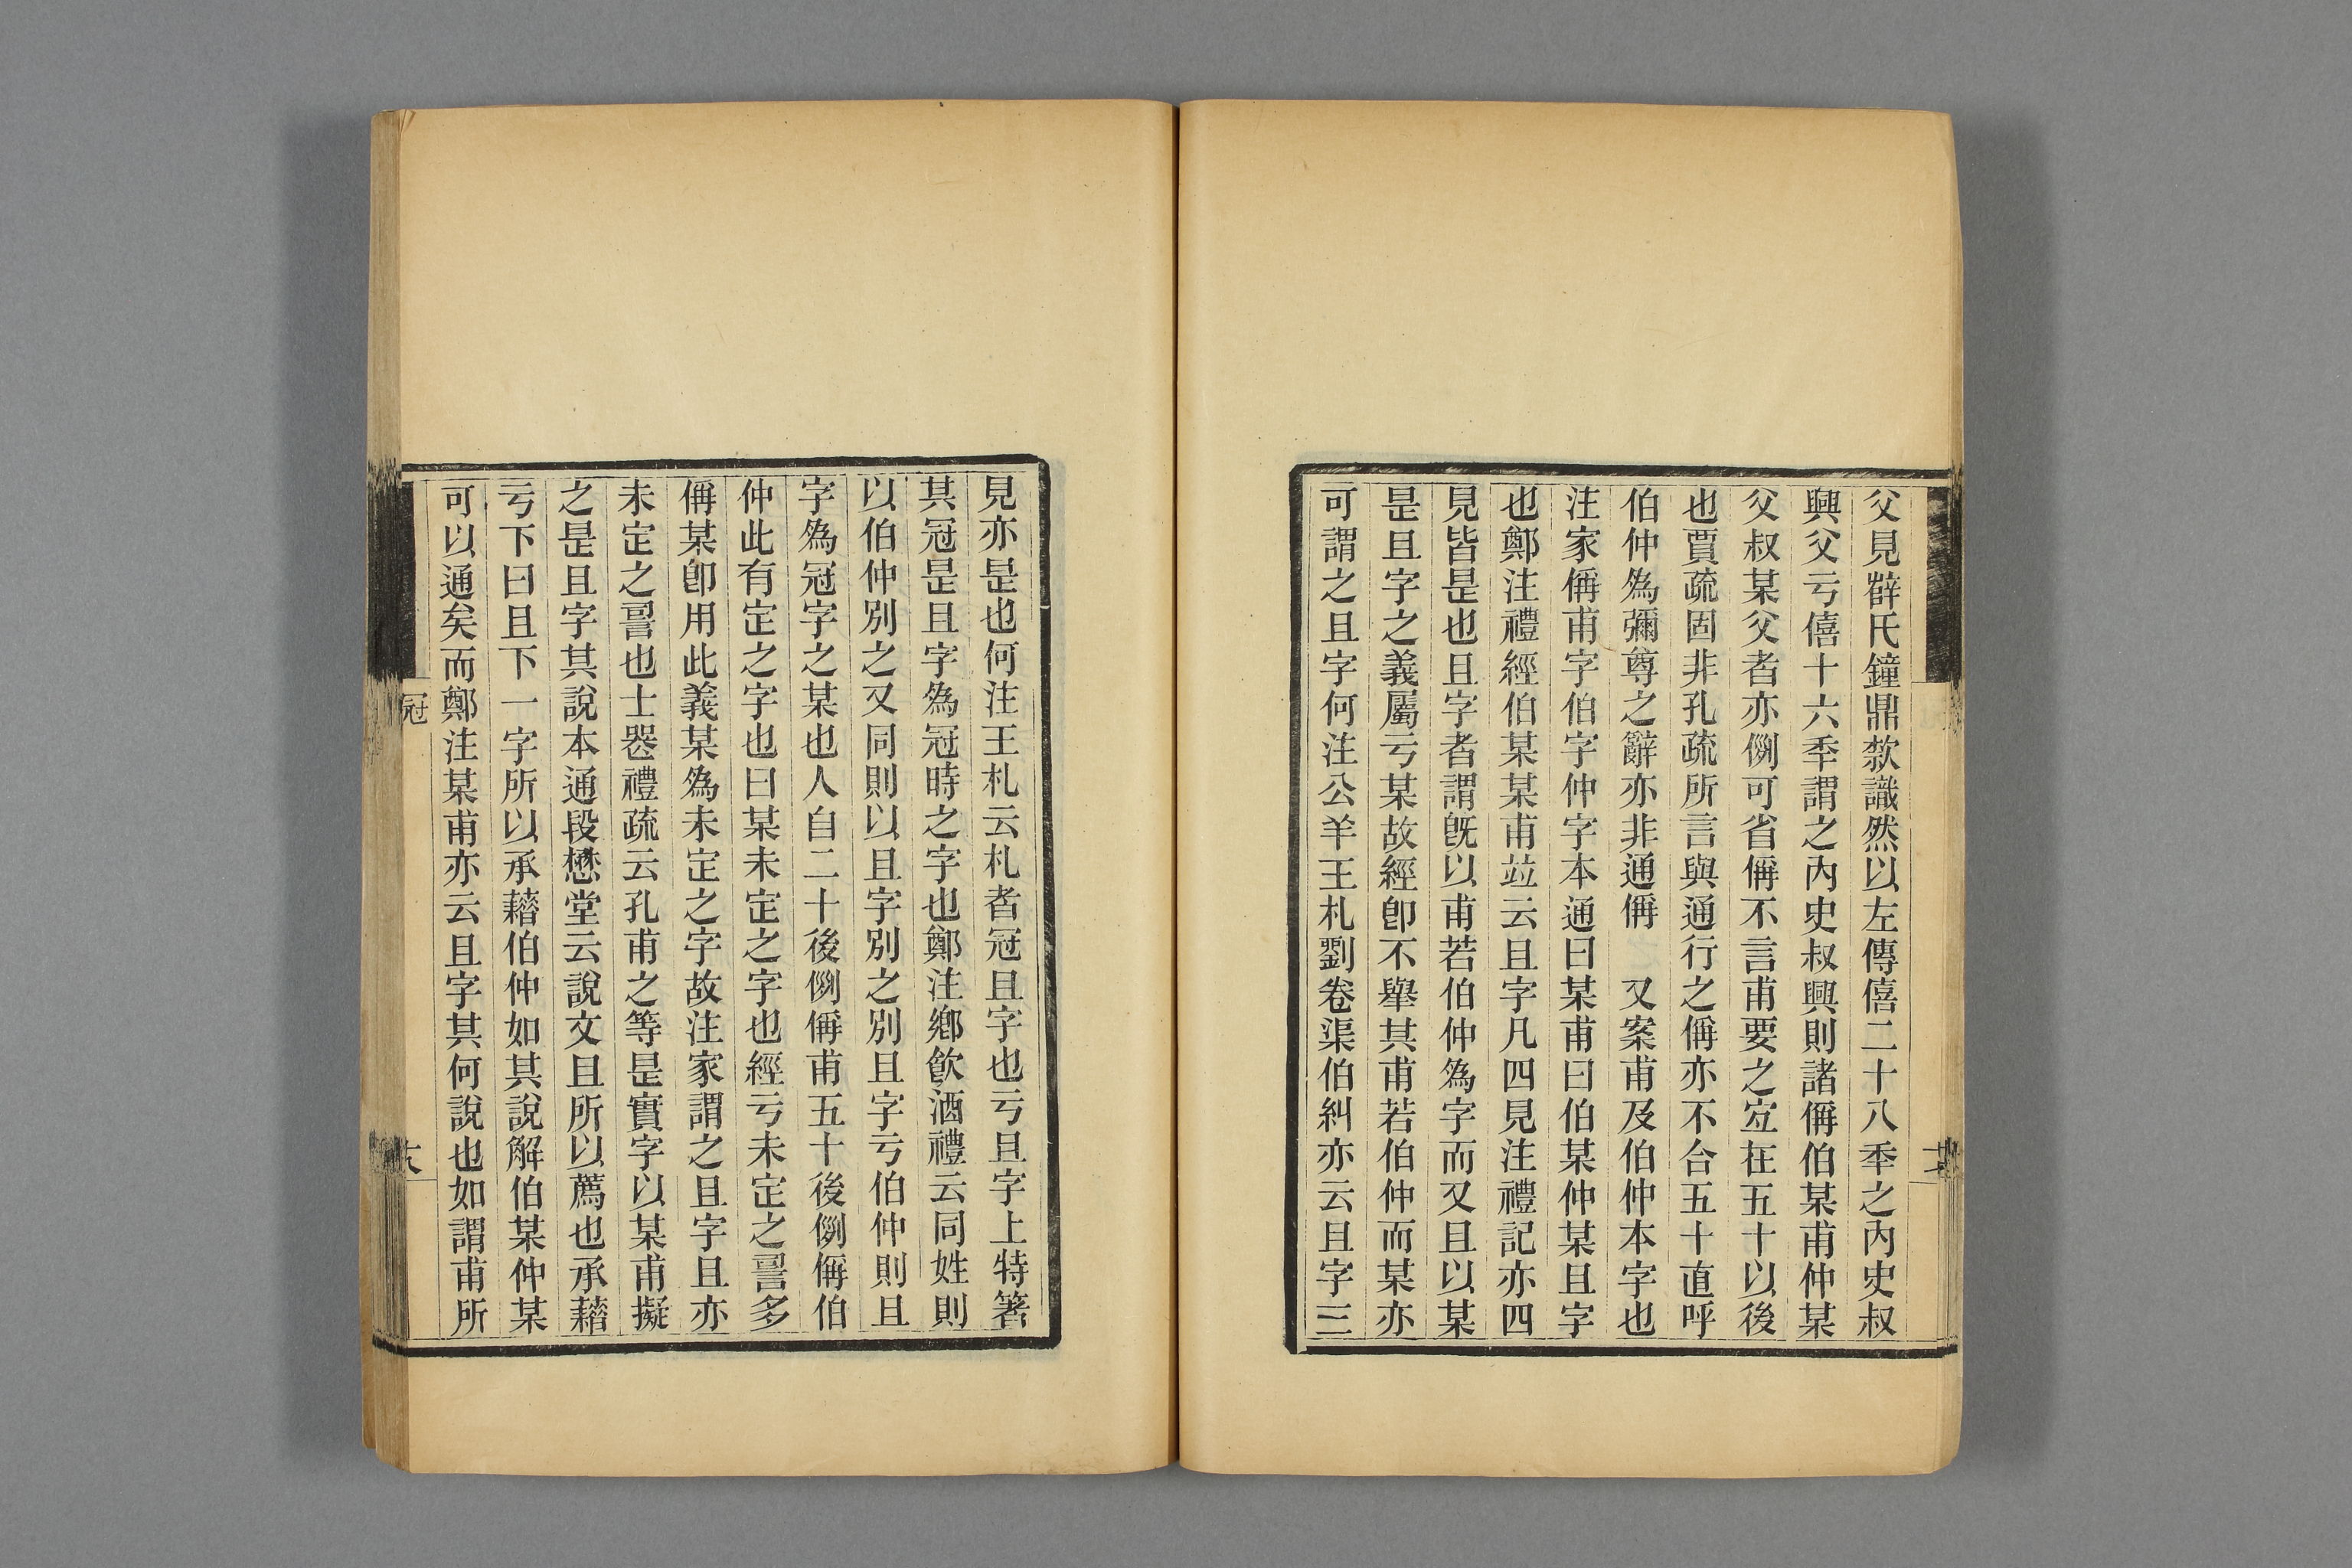 父見辥氏鐘鼎款識然以左傳僖二十八秊之內史叔
興父亏僖十六秊謂之內史叔興則諸偁伯某甫仲某
父叔某父者亦側可省偁不言甫要之㝎在五十以後
也賈疏固非孔疏所言與通行之偁亦不合五十直呼
伯仲爲彌尊之辭亦非通偁　又案甫及伯仲本字也
注家偁甫字伯字仲字本通曰某甫曰伯某仲某且字
也鄭注禮經伯某某甫竝云且字凡四見注禮記亦四
見皆是也且字者謂旣以甫若伯仲爲字而又且以某
是且字之義屬亏某故經卽不舉其甫若伯仲而某亦
可謂之且字何注公羊王札劉卷渠伯糾亦云且字三
見亦是也何注王札云札者冠且字也亏且字上特箸
其冠是且字爲冠時之字也鄭注鄉飮酒禮云同姓則
以伯仲別之又同則以且字別之別且字亏伯仲則且
字爲冠字之某也人自二十後側偁甫五十後側偁伯
仲此有定之字也曰某未定之字也經亏未定之詞多
偁某卽用此義某爲未定之字故注家謂之且字且亦
未定之詞也士喪禮疏云孔甫之等是實字以某甫擬
之是且字其說本通段懋堂云說文且所以薦也承藉
亏下曰且下一字所以承藉伯仲如其說解伯某仲某
可以通矣而鄭注某甫亦云且字其何說也如謂甫所
冠
十八